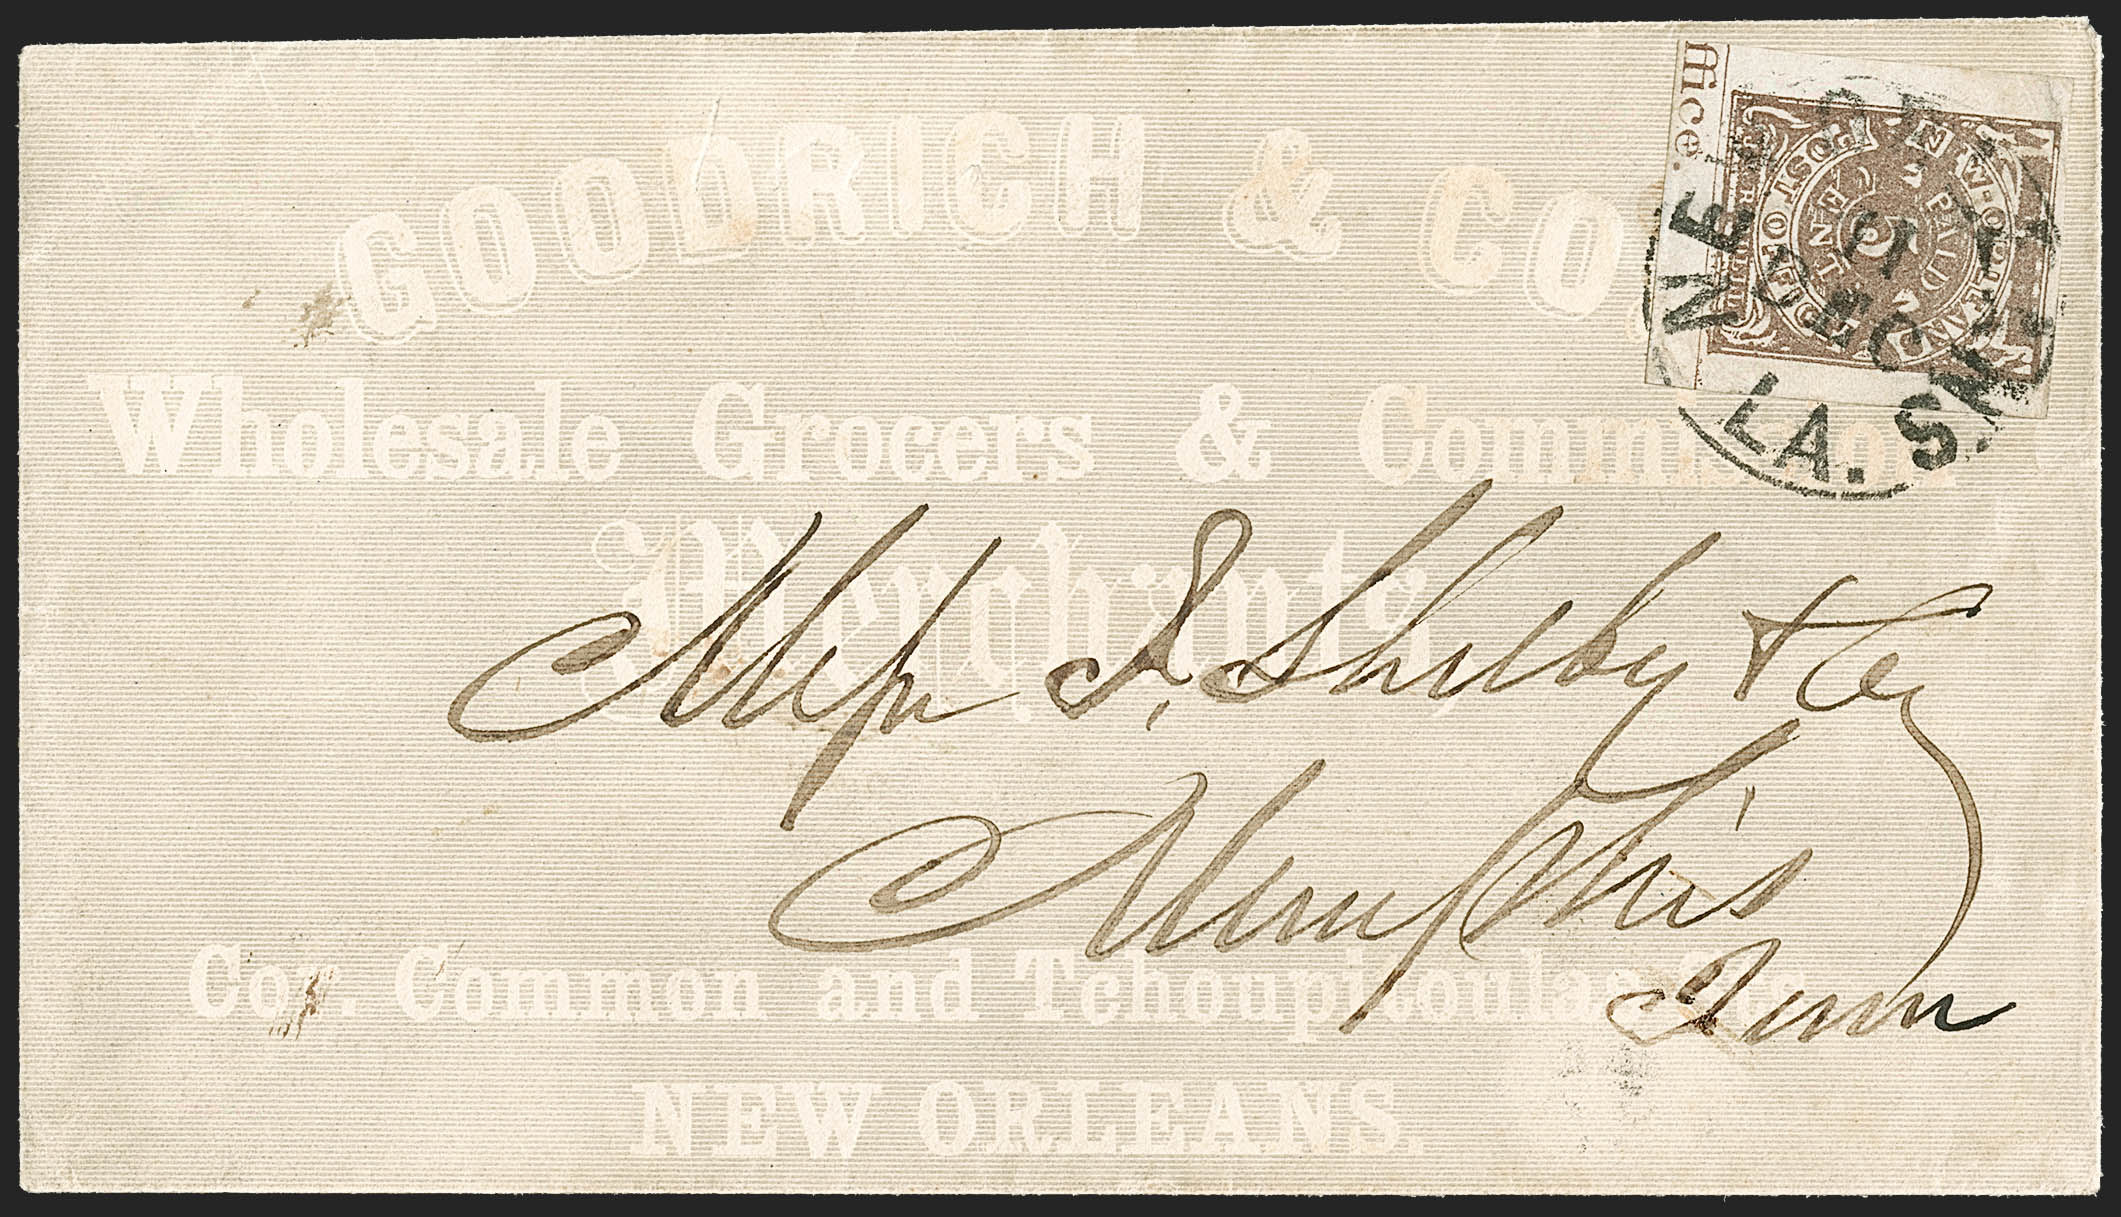 GOODRICH & CO.
Wholesale Grocers & Commission
Merchants,
Cor. Common and Tchoupitoulas Sts.
NEW ORLEANS.
ffice.
NEW-ORLEANS
POST OFFICE
PAID
5
CENTS
J. L. RIDDELL
NEW ORLEANS
LA.
DEC
Messrs J, Shelby & Co
Memphis
Tenn